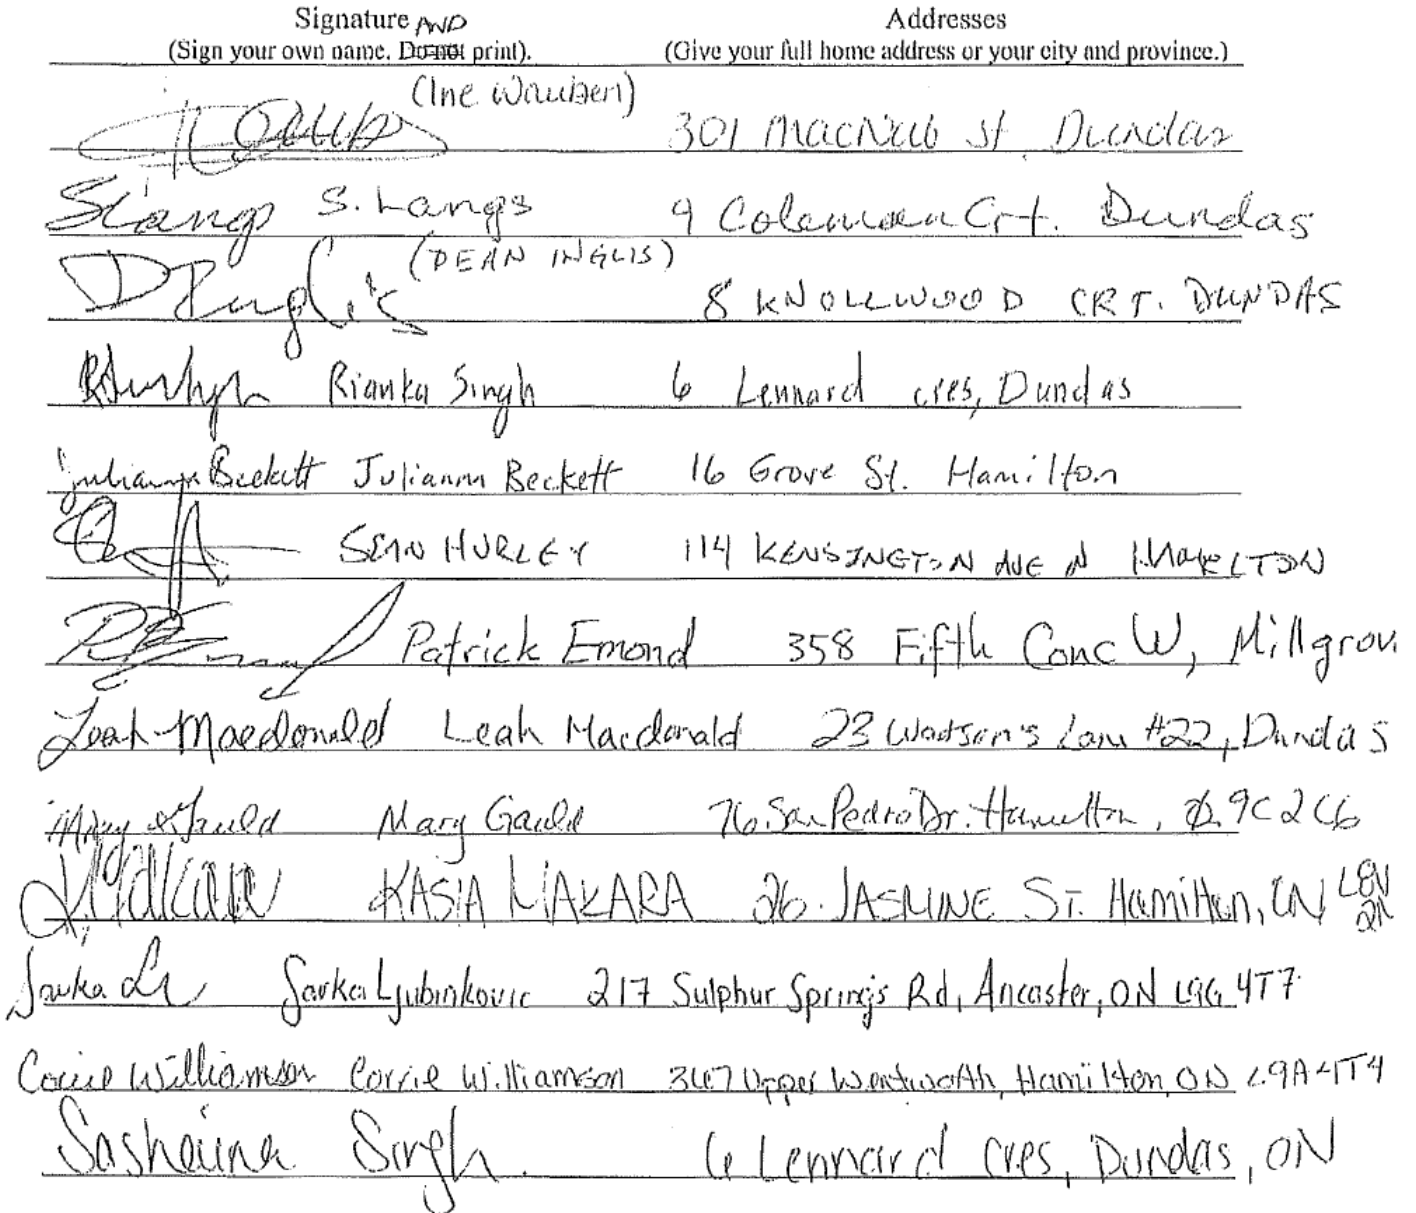 Signature AND Addresses
(Sign your own name. Do not print). (Give your full home address or your city and province.)
(Ine Wauben)
301 MacNab St. Dundas
S. Langs 9 Coleman Crt. Dundas
(DEAN INGLIS)
D Inglis 8 KNOLLWOOD CRT. DUNDAS
Rianka Singh 6 Lennard cres, Dundas
Julianna Beckett Julianna Beckett 16 Grove St. Hamilton
SEAN HURLEY 114 KENSINGTON AVE N HAMILTON
Patrick Emond 358 Fifth Conc W, Millgrov
Leah Macdonald Leah Macdonald 23 Watson's Lane #22, Dundas
Mary Gauld Mary Gauld 76 San Pedro Dr. Hamilton, 9C 2C6
KASIA MAKARA 26 JASMINE ST. Hamilton, ON L8V
Sarka Sarka Ljubinkovic 217 Sulphur Springs Rd, Ancaster, ON L9G 4T7
Corrie Williamson Corrie Williamson 367 Upper Wentworth, Hamilton, ON L9A 4T4
Sashaina Singh. 6 Lennard cres, Dundas, ON